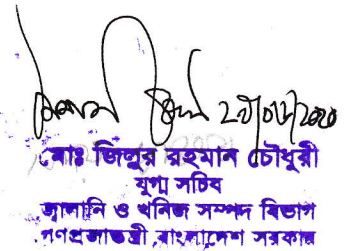 মোঃ জিলুর রহমান চৌধুরী
যুগ্ম সচিব
জ্বালানি ও খনিজ সম্পদ বিভাগ
গণপ্রজাতন্ত্রী বাংলাদেশ সরকার